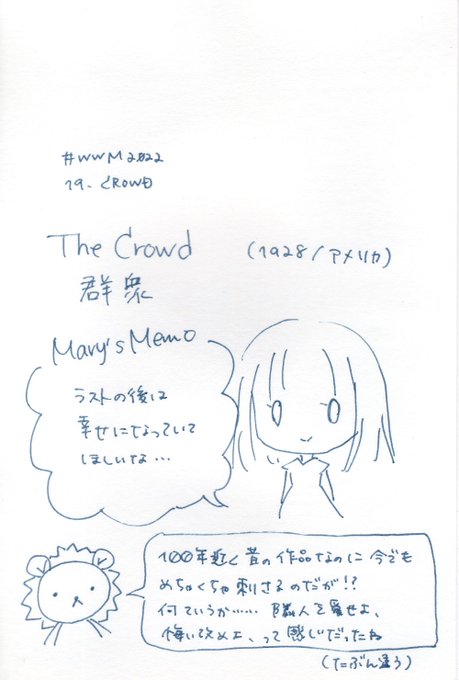 #WWM2022
19. CROWD
The Crowd (1928/アメリカ)
群衆
Mary's Memo
ラストの後は
幸せになっていて
ほしいな…
100年近く昔の作品なのに今でも
めちゃくちゃ刺さるのだが!?
何ていうか…… 隣人を愛せよ、
悔い改めよ、って感じだったね
(たぶん違う)